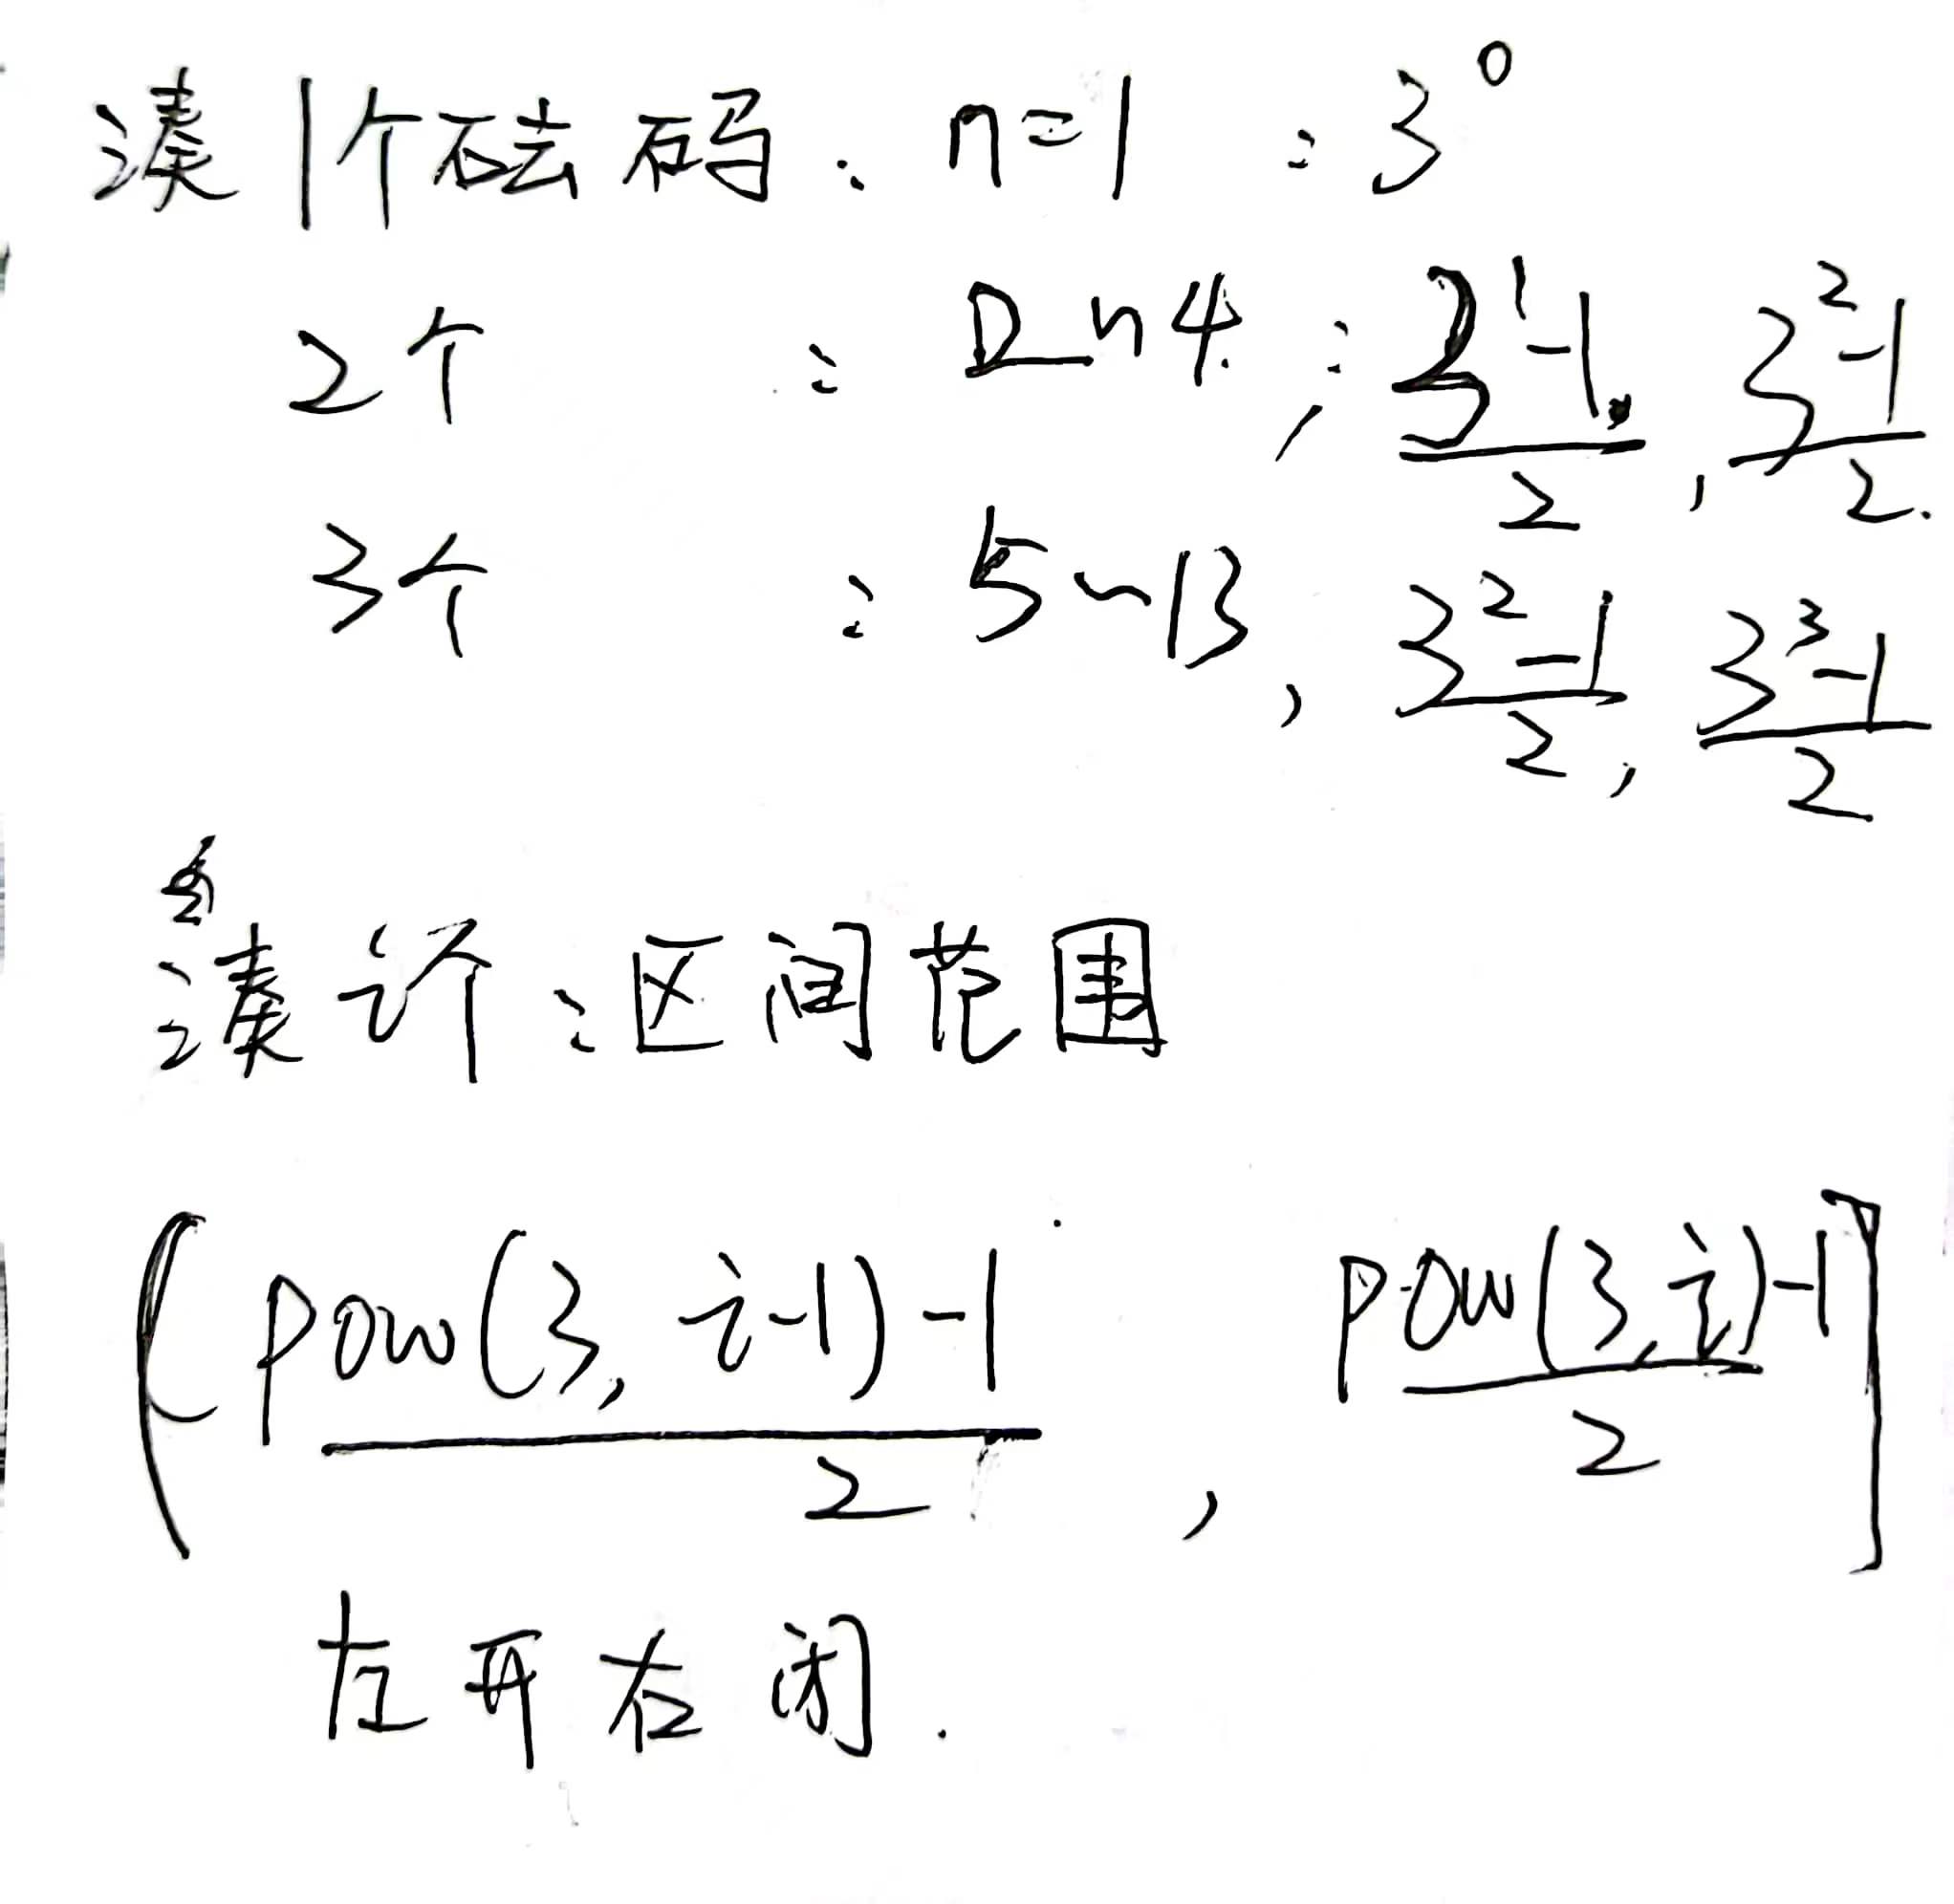 凑1个砝码: n=1 : 3^0
2个 : 2~4 ; (3^1-1)/2, (3^2-1)/2.
3个 : 5~13, (3^2-1)/2, (3^3-1)/2
凑i个:区间范围
( (pow(3, i-1)-1)/2 , (pow(3,i)-1)/2 ]
左开右闭.